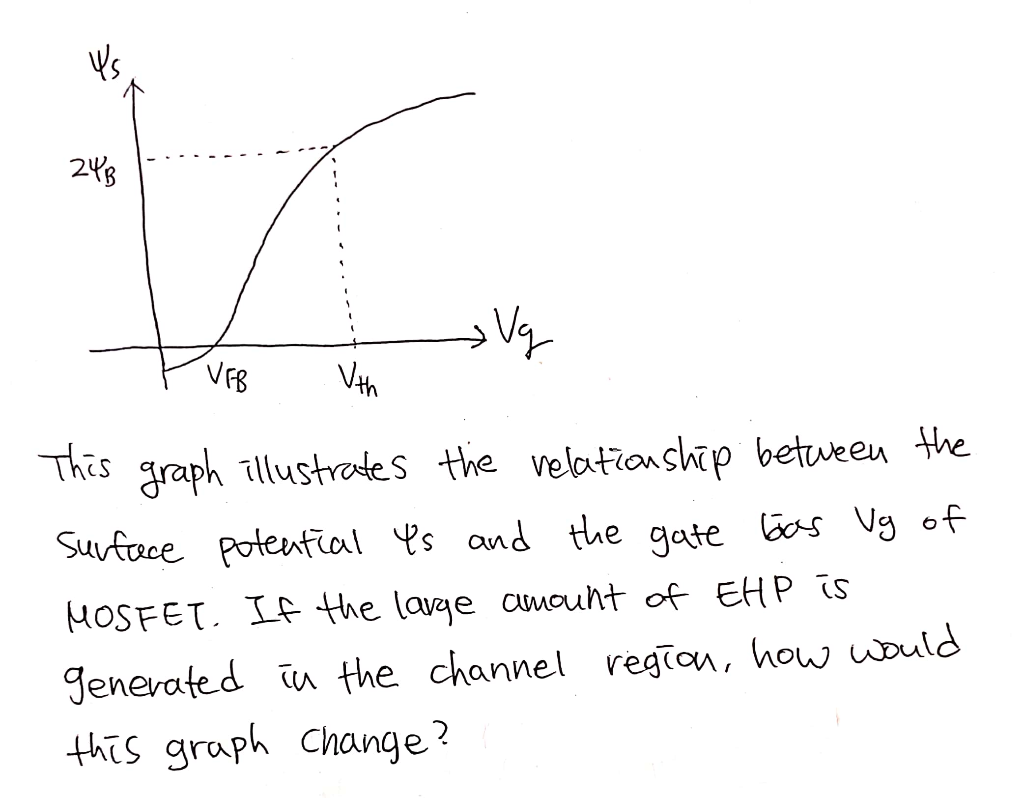 Ψs
2ΨB
Vg
VFB
Vth
This graph illustrates the relationship between the
surface potential Ψs and the gate bias Vg of
MOSFET. If the large amount of EHP is
generated in the channel region, how would
this graph change?